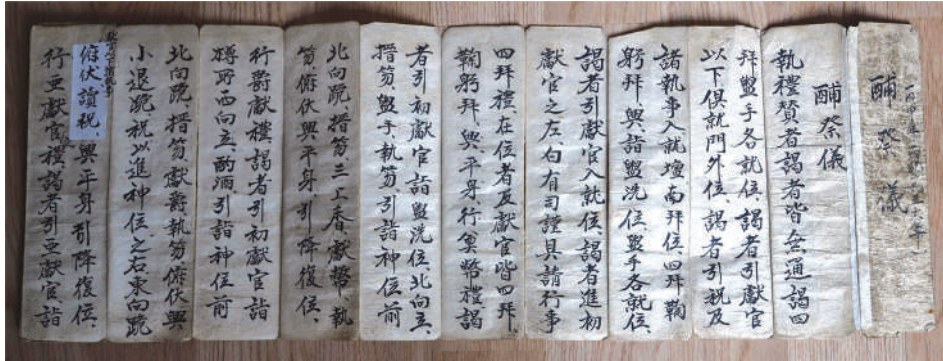 酺祭儀
酺祭儀
執禮贊者謁者皆仝通謁四
拜盥手各就位、謁者引獻官
以下俱就門外位、謁者引祝及
諸執事入就壇南拜位、四拜鞠
躬拜、興、詣盥洗位、盥手各就位、
謁者引獻官入就位、謁者進初
獻官之左、白有司謹具請行事
四拜禮在位者及獻官皆四拜、
鞠躬拜、興、平身、行奠幣禮謁
者引初獻官詣盥洗位、北向立、
搢笏、盥手、執笏、引詣神位前
北向跪、搢笏三上香、獻幣、執
笏、俯伏興平身、引降復位、
行爵獻禮、謁者引初獻官詣
樽所西向立、酌酒、引詣神位前
北向跪、搢笏、獻爵執笏、俯伏興
小退跪、祝以進神位之右東向跪
俯伏讀祝、興平身引降復位、
行亞獻官禮謁者引亞獻官、詣